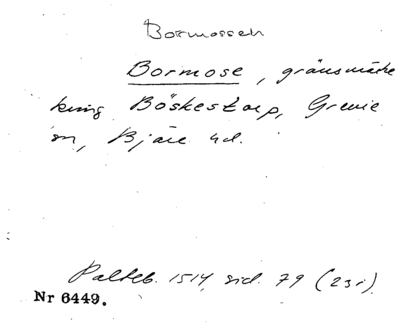 Bormossen
Bormose, gränsmärke
kring Böskestorp, Grevie
sn, Bjäre hd.
Palteb. 1514, sid. 79 (231).
Nr 6449.